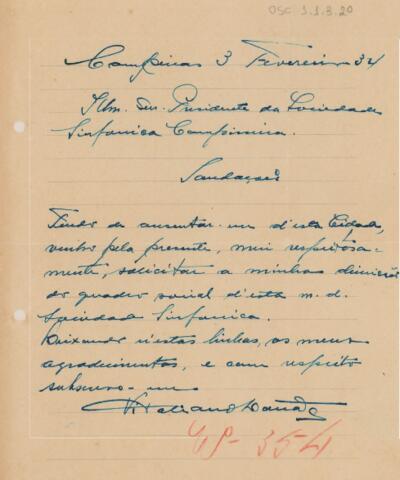 OSC 1.1.3.20
Campinas 3 Fevereiro 34
Illm. Snr. Presidente da Sociedade
Sinfonica Campineira.
Saudações
Tendo de ausentar-me d'esta Cidade,
venho pela presente, mui respeitosa-
mente, solicitar a minha demissão
do quadro social d'esta m. d.
Sociedade Sinfonica.
Deixando n'estas linhas, os meus
agradecimentos, e com respeito
subscrevo-me